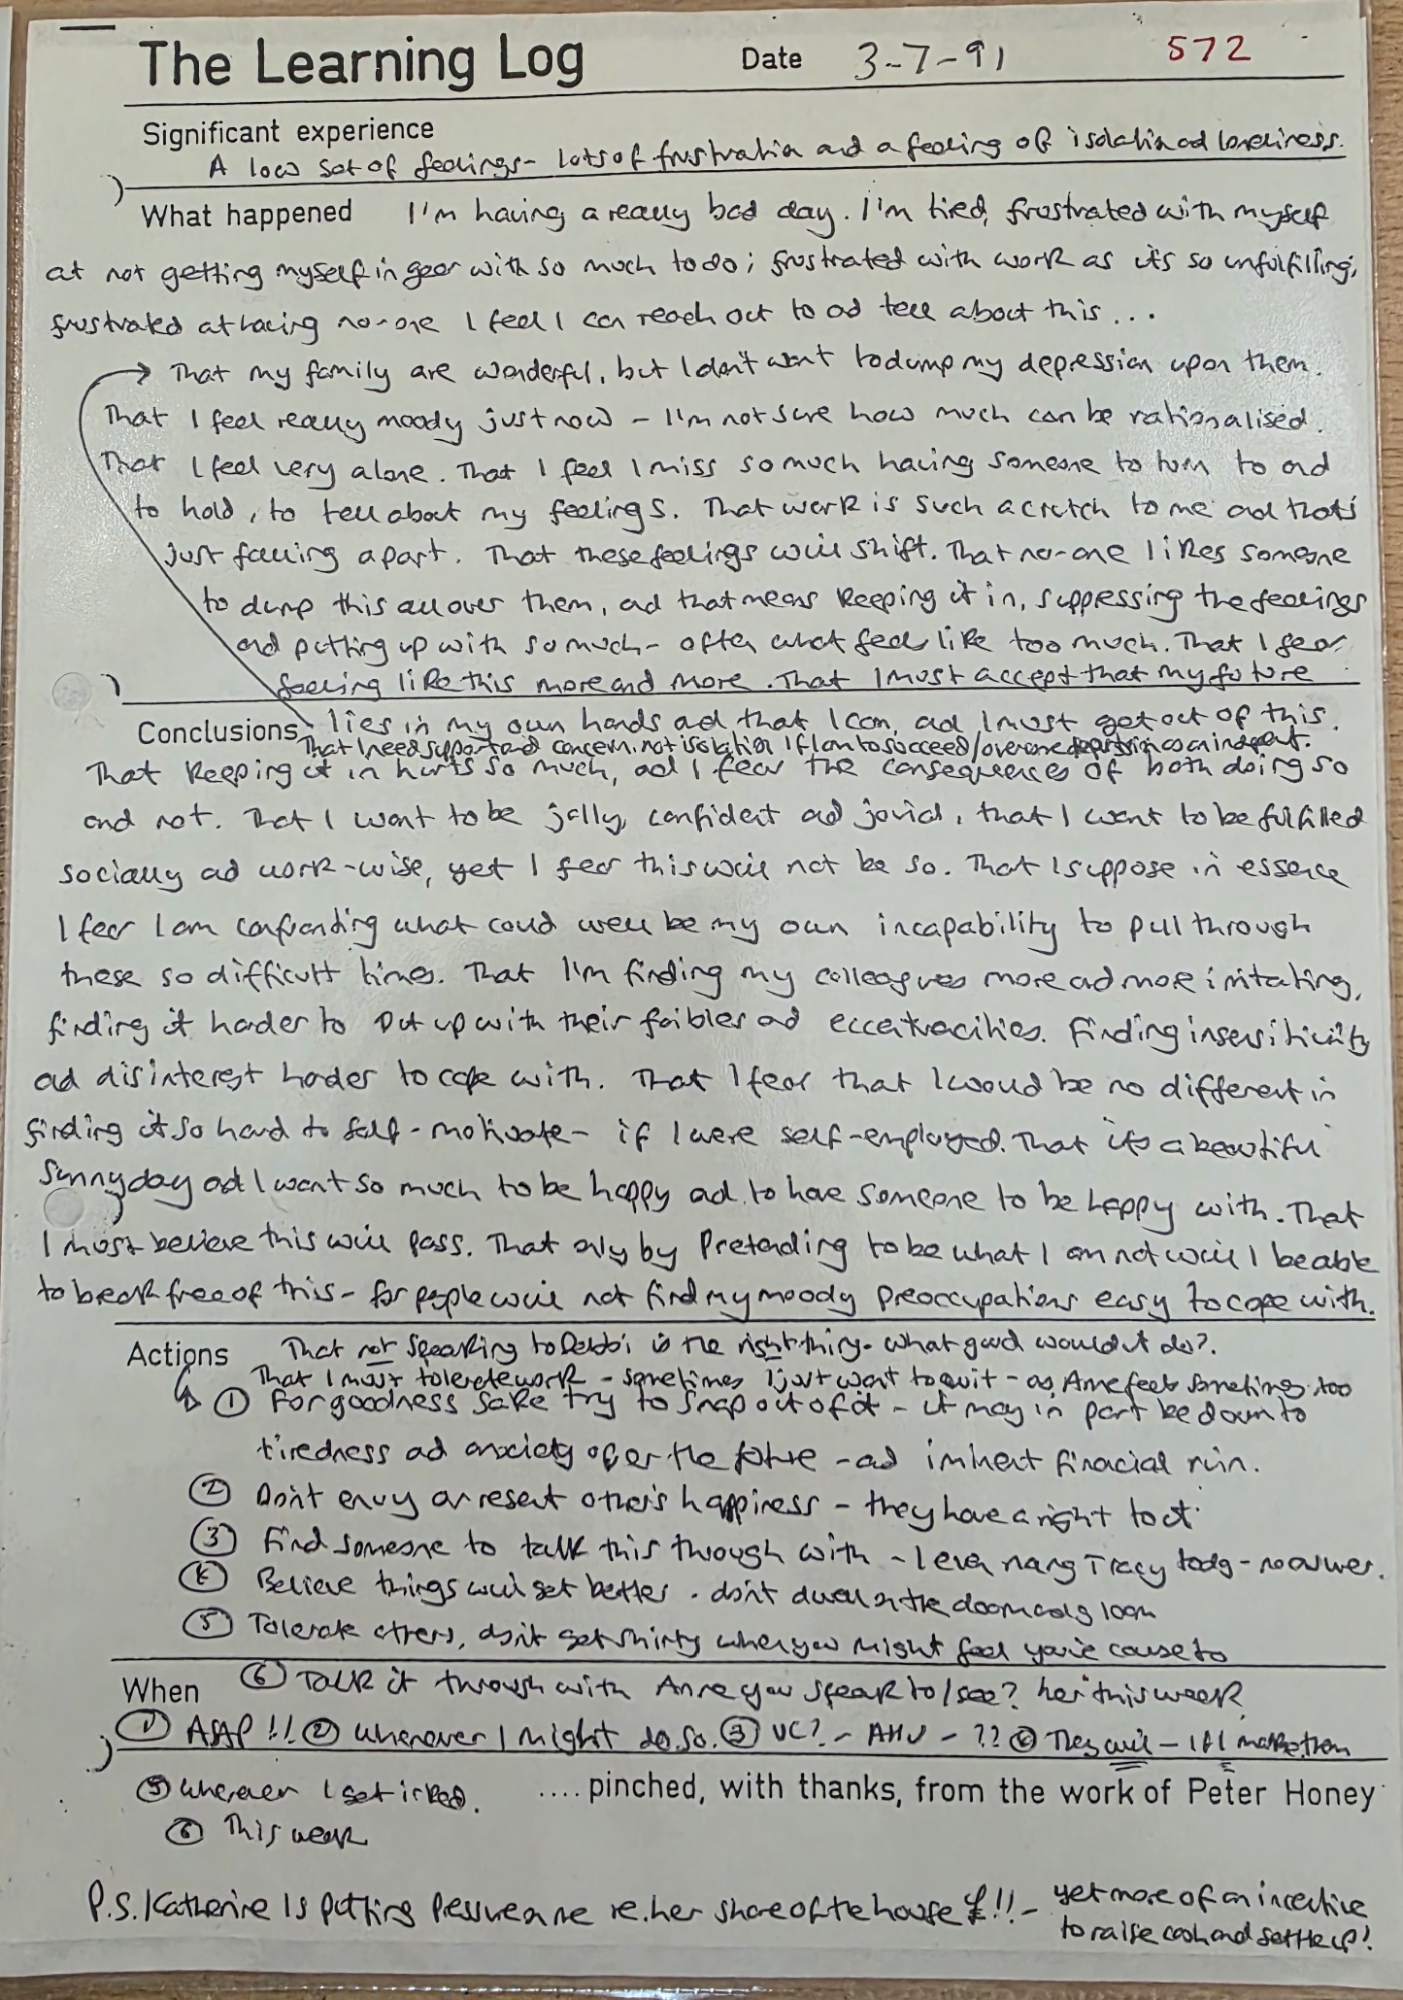 The Learning Log Date 3-7-91 572
Significant experience
A low set of feelings - lots of frustration and a feeling of isolation ad loneliness.
What happened I'm having a really bad day. I'm tired, frustrated with myself
at not getting myself in gear with so much to do; frustrated with work as it's so unfulfilling,
frustrated at having no-one I feel I can reach out to ad tell about this...
→ That my family are wonderful, but I don't want to dump my depression upon them.
That I feel really moody just now - I'm not sure how much can be rationalised.
That I feel very alone. That I feel I miss so much having someone to turn to ad
to hold, to tell about my feelings. That work is such a crutch to me ad that's
just falling apart. That these feelings will shift. That no-one likes someone
to dump this all over them, ad that means keeping it in, suppressing the feelings
and putting up with so much - often what feels like too much. That I fear
feeling like this more and more. That I must accept that my future
Conclusions lies in my own hands ad that I can, ad I must get out of this.
That I need support and concern, not isolation if I am to succeed/overcome
That keeping it in hurts so much, ad I fear the consequences of both doing so
and not. That I want to be jolly, confident ad jovial, that I want to be fulfilled
socially ad work-wise, yet I fear this will not be so. That I suppose in essence
I fear I am confronting what could well be my own incapability to pull through
these so difficult times. That I'm finding my colleagues more ad more irritating,
finding it harder to put up with their foibles ad eccentracities. Finding insensitivity
ad disinterest harder to cope with. That I fear that I would be no different in
finding it so hard to self-motivate - if I were self-employed. That it's a beautiful
sunny day ad I want so much to be happy ad to have someone to be happy with. That
I must believe this will pass. That only by pretending to be what I am not will I be able
to break free of this - for people will not find my moody preoccupations easy to cope with.
Actions That not speaking to Debbi is the right thing - what good would it do?.
That I must tolerate work - sometimes I just want to quit - as Anne feels sometimes too
① For goodness sake try to snap out of it - it may in part be down to
tiredness ad anxiety over the future - ad financial ruin.
② Don't envy or resent other's happiness - they have a right to it.
③ Find someone to talk this through with - I even rang Tracy today - no answer.
④ Believe things will get better - don't dwell on the doom ad gloom
⑤ Tolerate others, don't get shirty when you might feel you've cause to
When ⑥ Talk it through with Anne you speak to/see? her this week
① ASAP!! ② Whenever I might do so. ③ VC? - AHJ - ?? ④ They will - if I make them
⑤ Whenever I get irked. ....pinched, with thanks, from the work of Peter Honey
⑥ This week
P.S. Katherine is putting pressure on me re. her share of the house £!! - yet more of an incentive
to raise cash and settle up!